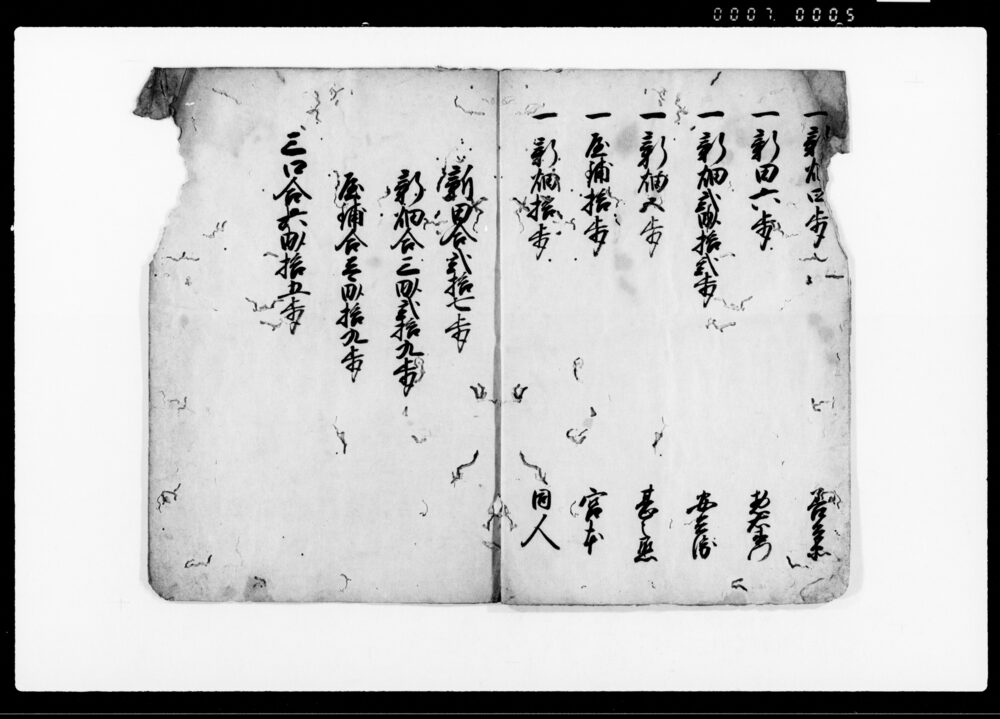 0007 0005
一新畑口歩
一新田六歩
一新畑弐畝拾弐歩
一新畑八歩
一屋鋪拾歩
一新畑拾歩
安兵衛
宮本
同人
新田合弐拾七歩
新畑合三畝弐拾九歩
屋鋪合壱畝拾九歩
三口合六畝拾五歩